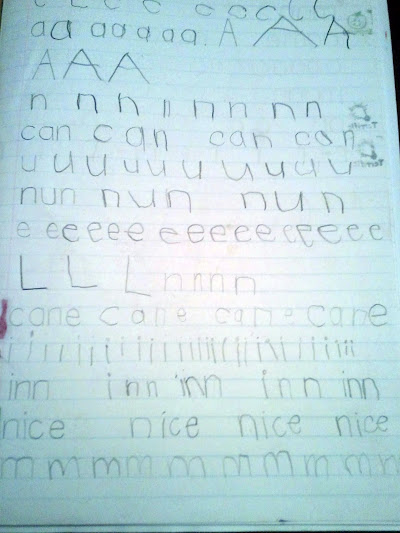 c c c c c c c c c
aa aaaaa. A A A
A A A
n n n n n n n n
can can can can
u u u u u u u u u u u
nun nun nun
e eeeee eeeeeeeeee
L L L nnnn
cane cane cane cane
inn inn inn inn inn
nice nice nice nice
m m m m m m m m m m